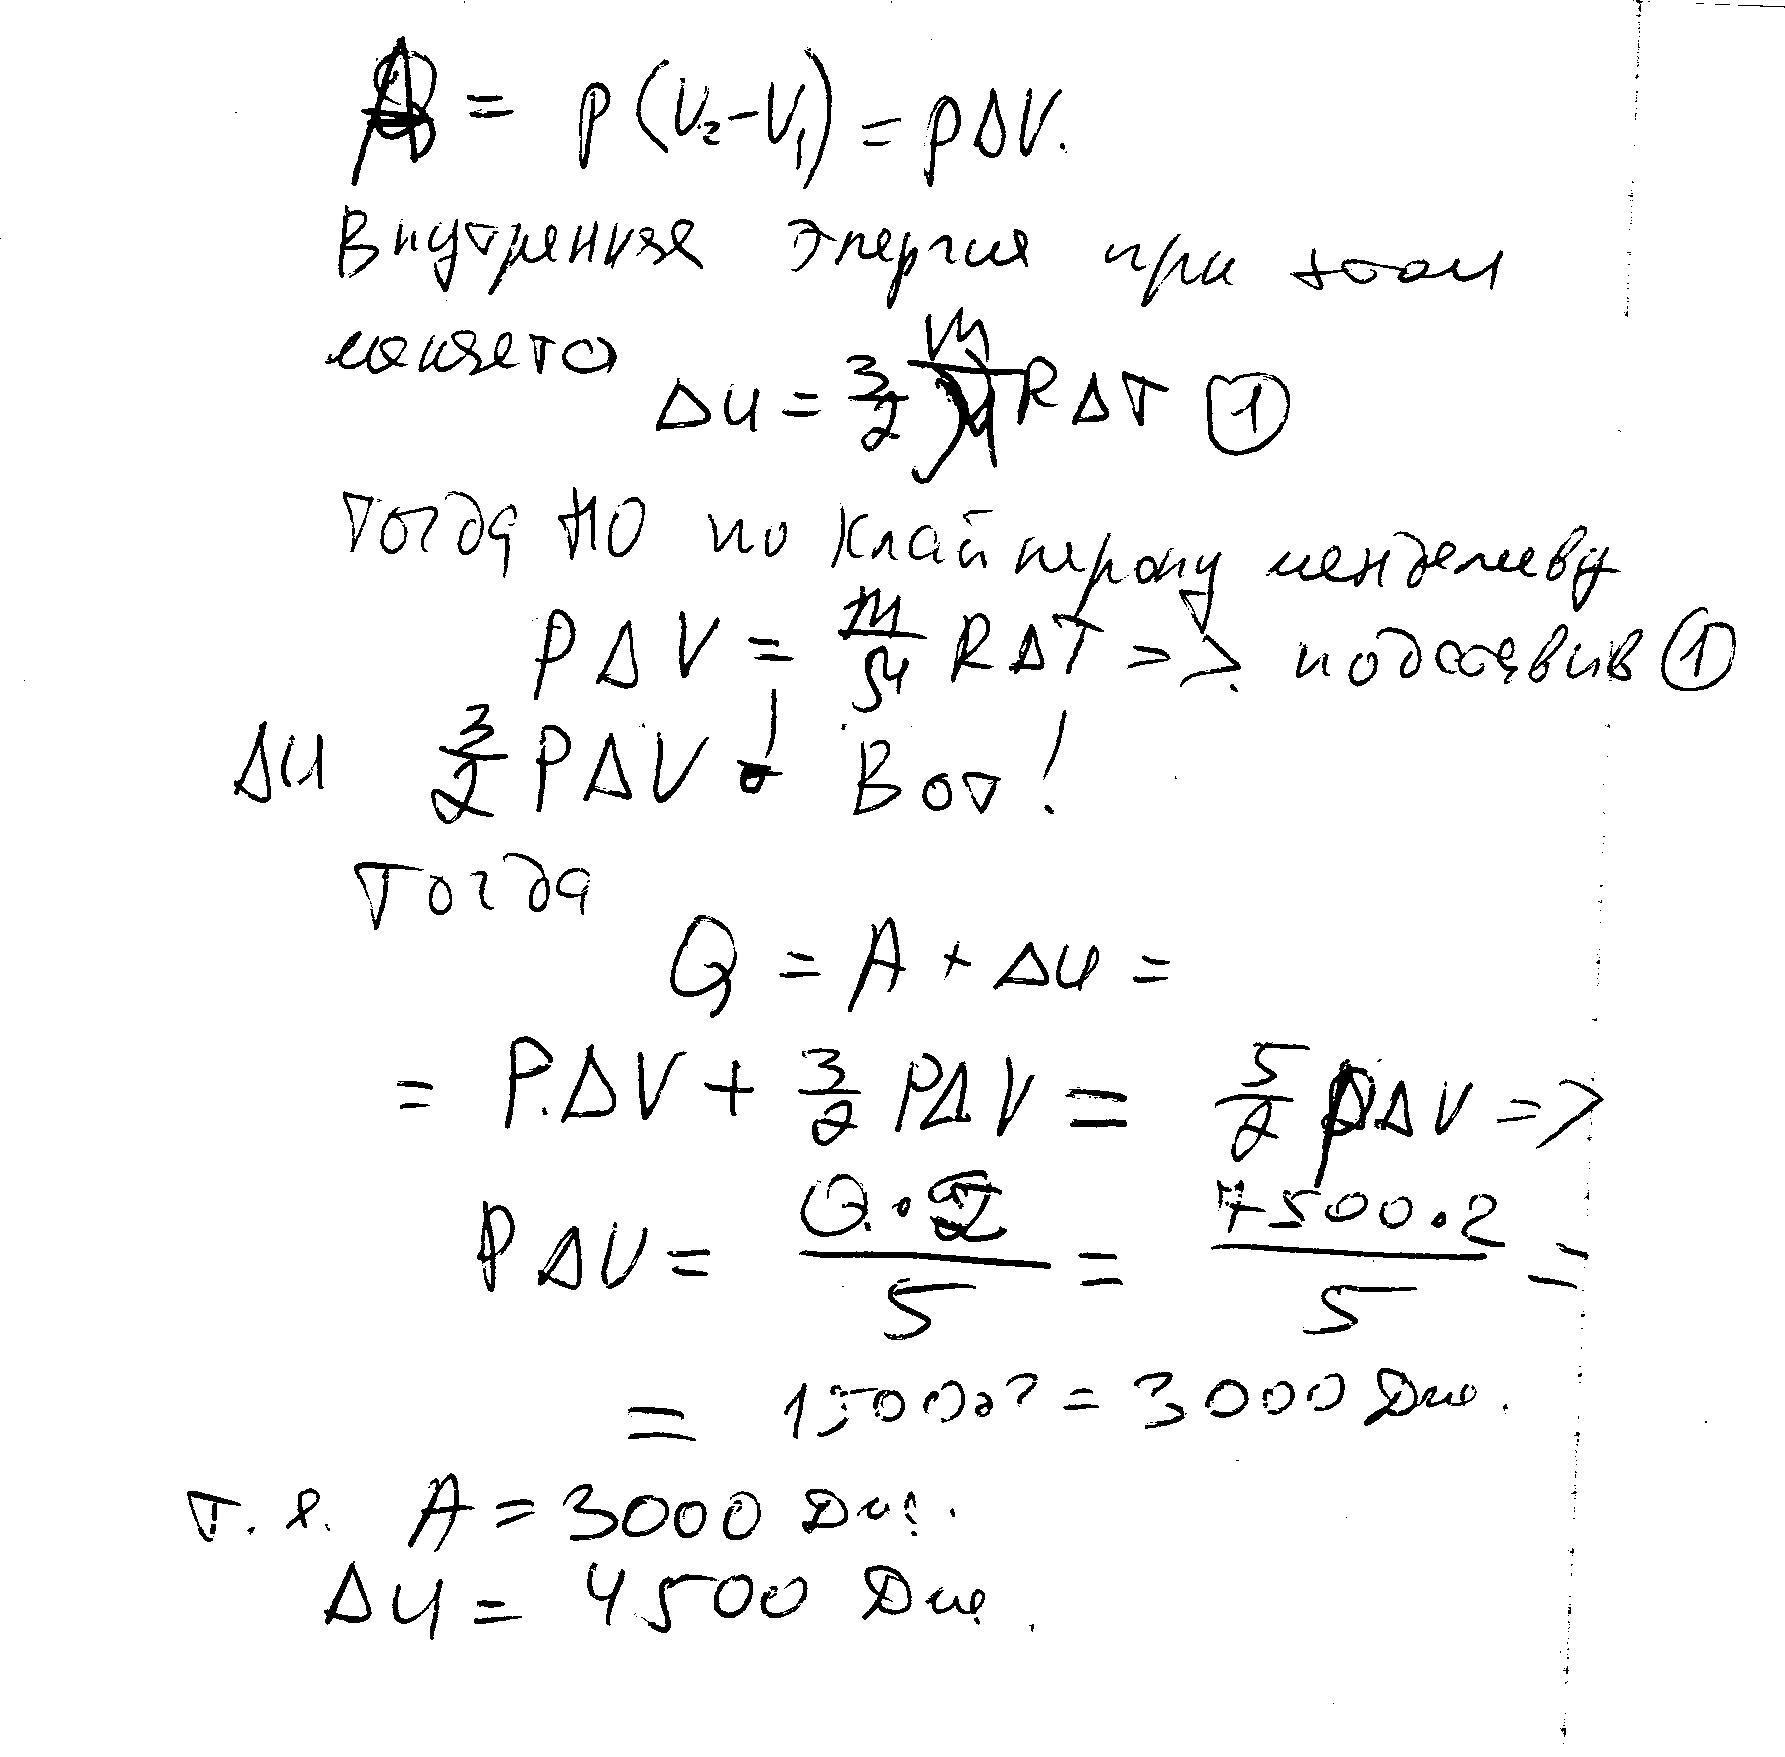 A = p(V₂-V₁) = pΔV.
Внутренняя энергия при этом
меняется
ΔU = 3/2 m/μ RΔT ①
тогда НО по Клайперону менделееву
PΔV = m/μ RΔT => подставив ①
ΔU 3/2 PΔV Вот!
Тогда
Q = A + ΔU =
= P.ΔV + 3/2 PΔV = 5/2 pΔV =>
PΔV = Q·2/5 = 7500·2/5 =
= 1500·2 = 3000 Дж.
т.е. A = 3000 Дж.
ΔU = 4500 Дж.